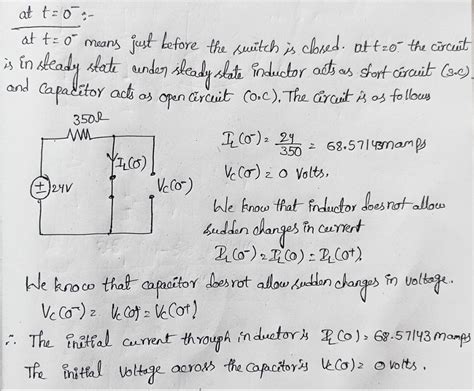 at t=0⁻:-
at t=0⁻ means just before the switch is closed. at t=0⁻ the circuit
is in steady state under steady state inductor acts as short circuit (s.c)
and capacitor acts as open circuit (o.c). The circuit is as follows
350Ω
IL(0⁻)
24V
Vc(0⁻)
IL(0⁻) = 24/350 = 68.57143mamps
Vc(0⁻) = 0 volts.
We know that inductor does not allow
sudden changes in current
IL(0⁻) = IL(0) = IL(0+)
We know that capacitor does not allow sudden changes in voltage.
Vc(0⁻) = Vc(0) = Vc(0+)
∴ The initial current through inductor is IL(0) = 68.57143 mamps
The initial voltage across the capacitor is Vc(0) = 0 volts.